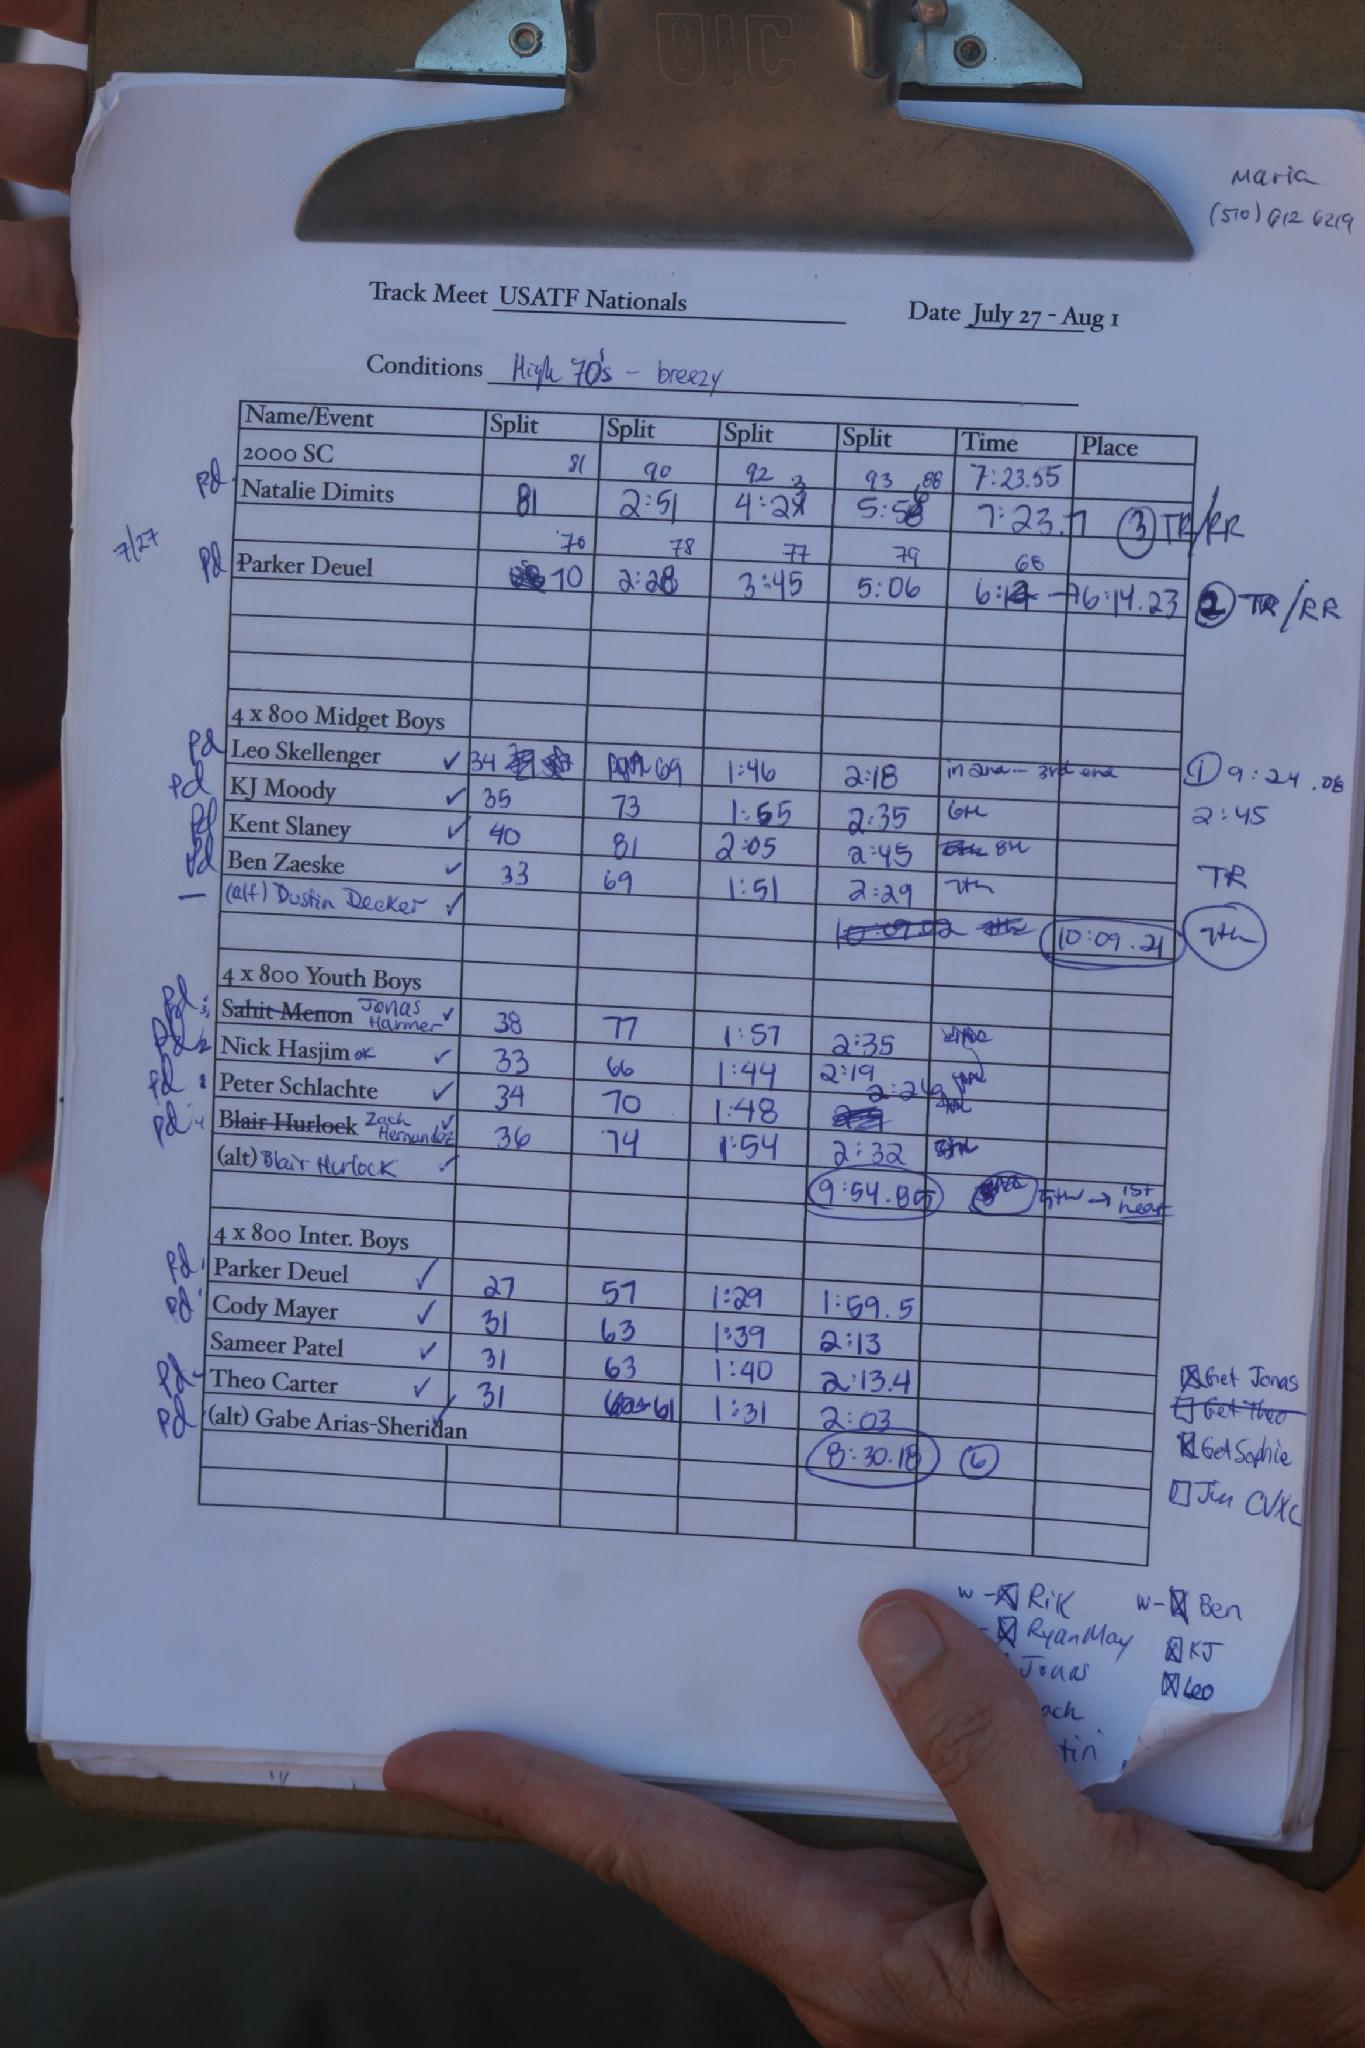 OIC
Maria
(510) 612 6219
Track Meet USATF Nationals
Date July 27 - Aug 1
Conditions High 70's - breezy
Name/Event Split Split Split Split Time Place
2000 SC 81 90 92 93 88 7:23.55
pd Natalie Dimits 81 2:51 4:23 5:56 7:23.7 3 TR/RR
7/27
70 78 77 79 68
pd Parker Deuel 70 2:28 3:45 5:06 6:14.23 2 TR/RR
4 x 800 Midget Boys
pd Leo Skellenger ✓ 34 69 1:46 2:18 in 2nd - 3rd end 1 9:24.08
pd KJ Moody ✓ 35 73 1:55 2:35 6th 2:45
pd Kent Slaney ✓ 40 81 2:05 2:45 8th
pd Ben Zaeske ✓ 33 69 1:51 2:29 7th TR
— (alt) Dustin Decker ✓
10:09.02 10:09.21 7th
4 x 800 Youth Boys
pd 3 Sahit Menon Jonas Harmer ✓ 38 77 1:57 2:35
pd 2 Nick Hasjim OK ✓ 33 66 1:44 2:19
pd 1 Peter Schlachte ✓ 34 70 1:48 2:24
pd 4 Blair Hurlock Zach Hernandez ✓ 36 74 1:54 2:32 5th
(alt) Blair Hurlock ✓
9:54.85 5th → 1st heat
4 x 800 Inter. Boys
pd Parker Deuel ✓ 27 57 1:29 1:59.5
pd Cody Mayer ✓ 31 63 1:39 2:13
Sameer Patel ✓ 31 63 1:40 2:13.4
pd Theo Carter ✓ 31 61 1:31 2:03
pd (alt) Gabe Arias-Sheridan ✓
8:30.18 6
Get Jonas
Get Theo
Get Sophie
Jen CVXC
W - Rik
Ryan May
Jonas
ach
tin
W - Ben
KJ
Leo